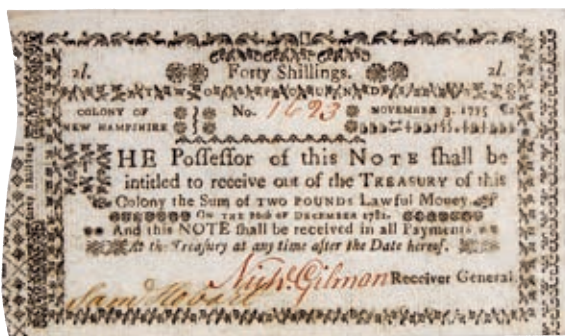 2l. Forty Shillings. 2l.
COLONY OF NEW HAMPSHIRE No. 1693 NOVEMBER 3. 1775
THE Poſſeſſor of this NOTE ſhall be
intitled to receive out of the TREASURY of this
Colony the Sum of TWO POUNDS Lawful Money
ON THE 20th OF DECEMBER 1782.
And this NOTE ſhall be received in all Payments
At the Treaſury at any time after the Date hereof.
Nichs. Gilman Receiver General.
Saml Hobart